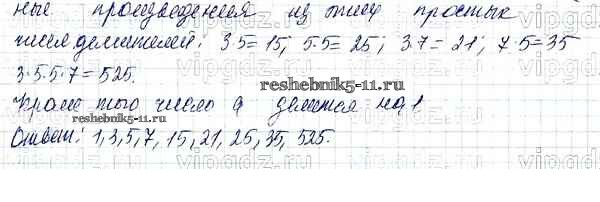 ные произведения из этих простых
чисел делителей: 3·5=15; 5·5=25; 3·7=21; 7·5=35
3·5·5·7=525.
Кроме того число a делится на 1
Ответ: 1,3,5,7, 15,21, 25,35, 525.
reshebnik5-11.ru
reshebnik5-11.ru
vipgdz.ru